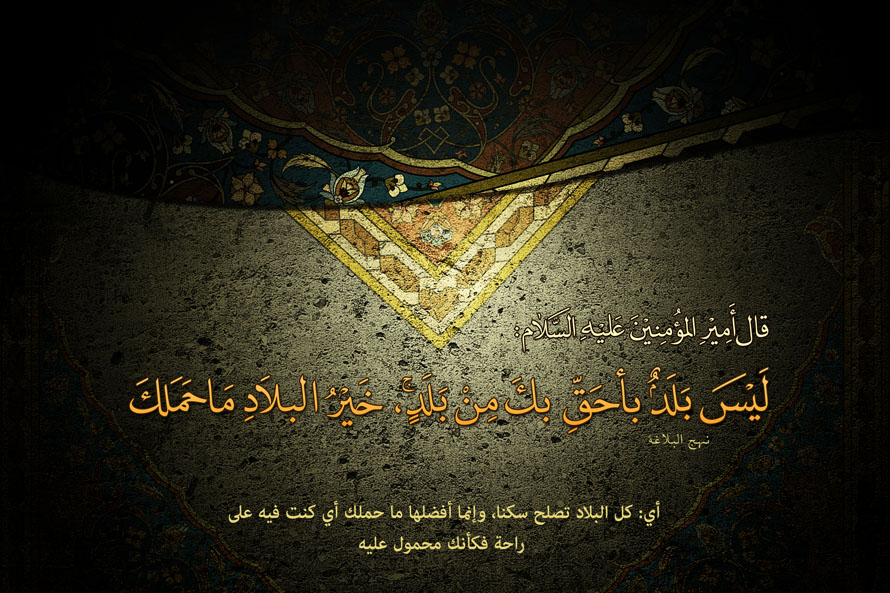 قال أَمِيْرِ المؤُمنِيْنَ عَليْهِ السَّلام:
لَيْسَ بَلَدٌ بأحَقِّ بكَ مِنْ بَلَدٍ، خَيْرُ البلاَدِ مَا حَمَلكَ
نهج البلاغة
أي: كل البلاد تصلح سكنا، وإنما أفضلها ما حملك أي كنت فيه على
راحة فكأنك محمول عليه